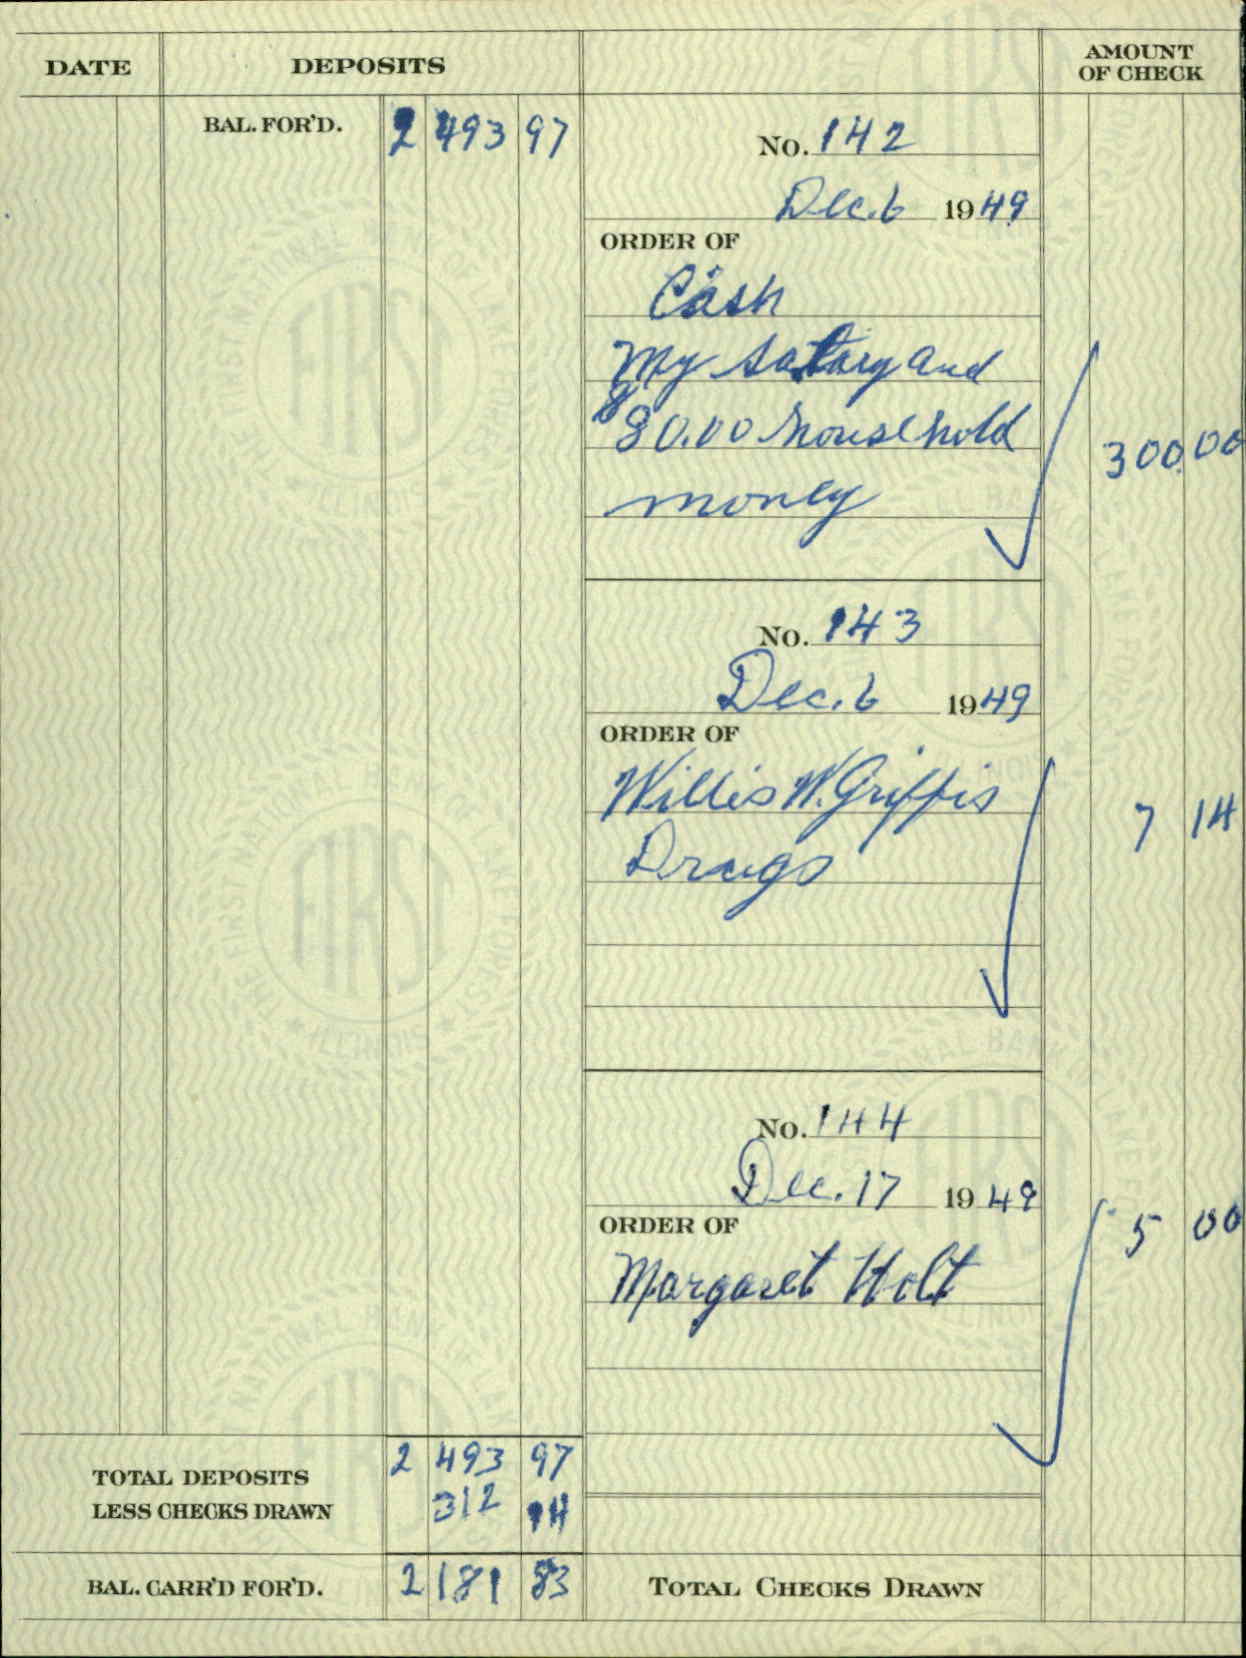 DATE DEPOSITS AMOUNT OF CHECK
BAL. FOR'D. 2 493 97
No. 142
Dec. 6 1949
ORDER OF
Cash
My Salary and
$80.00 household
money
300.00
No. 143
Dec. 6 1949
ORDER OF
Willis W. Griffis
Drugs
7 14
No. 144
Dec. 17 1949
ORDER OF
Margaret Holt
5 00
TOTAL DEPOSITS 2 493 97
LESS CHECKS DRAWN 312 14
BAL. CARR'D FOR'D. 2 181 83
TOTAL CHECKS DRAWN
THE FIRST NATIONAL BANK OF LAKE FOREST
FIRST
ILLINOIS